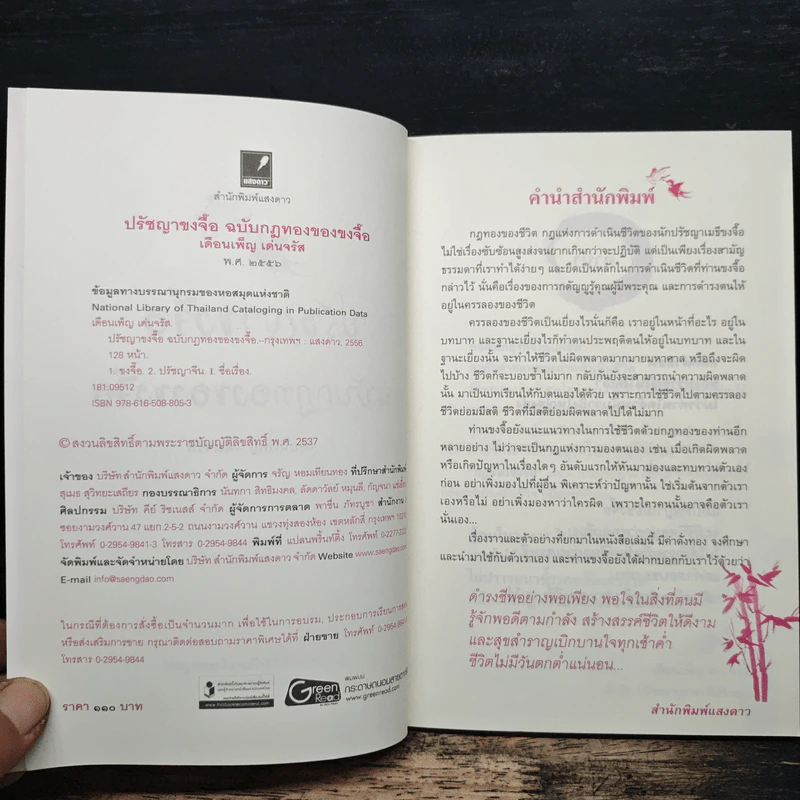 แสงดาว
สำนักพิมพ์แสงดาว
ปรัชญาขงจื๊อ ฉบับกฎทองของขงจื๊อ
เดือนเพ็ญ เด่นจรัส
พ.ศ. ๒๕๕๖
ข้อมูลทางบรรณานุกรมของหอสมุดแห่งชาติ
National Library of Thailand Cataloging in Publication Data
เดือนเพ็ญ เด่นจรัส.
ปรัชญาขงจื๊อ ฉบับกฎทองของขงจื๊อ.--กรุงเทพฯ : แสงดาว, 2556.
128 หน้า.
1. ขงจื๊อ. 2. ปรัชญาจีน. I. ชื่อเรื่อง.
181.09512
ISBN 978-616-508-805-3
© สงวนลิขสิทธิ์ตามพระราชบัญญัติลิขสิทธิ์ พ.ศ. 2537
เจ้าของ บริษัท สำนักพิมพ์แสงดาว จำกัด ผู้จัดการ จรัญ หอมเทียนทอง ที่ปรึกษาสำนักพิมพ์
สุเมธ สุวิทยะเสถียร กองบรรณาธิการ นันทกา สิทธิมงคล, ลัดดาวัลย์ หมุนลี, กัญจนา
ศิลปกรรม บริษัท คีย์ รีซเนลส์ จำกัด ผู้จัดการการตลาด พาชื่น ภัทรบูชา สำนักงาน
ซอยงามวงศ์วาน 47 แยก 2-5-2 ถนนงามวงศ์วาน แขวงทุ่งสองห้อง เขตหลักสี่ กรุงเทพฯ
โทรศัพท์ 0-2954-9841-3 โทรสาร 0-2954-9844 พิมพ์ที่ แปลนพริ้นท์ติ้ง โทรศัพท์
จัดพิมพ์และจัดจำหน่ายโดย บริษัท สำนักพิมพ์แสงดาว จำกัด Website www.saengdao.com,
E-mail info@saengdao.com
ในกรณีที่ต้องการสั่งซื้อเป็นจำนวนมาก เพื่อใช้ในการอบรม, ประกอบการเรียนการสอน
หรือส่งเสริมการขาย กรุณาติดต่อสอบถามราคาพิเศษได้ที่ ฝ่ายขาย โทรศัพท์
โทรสาร 0-2954-9844
Green Read
พิมพ์บน
กระดาษถนอมสายตา
www.greenread.com
ราคา ๑๑๐ บาท
คำนำสำนักพิมพ์
กฎทองของชีวิต กฎแห่งการดำเนินชีวิตของนักปรัชญาเมธีขงจื๊อ
ไม่ใช่เรื่องซับซ้อนสูงส่งจนยากเกินกว่าจะปฏิบัติ แต่เป็นเพียงเรื่องสามัญ
ธรรมดาที่เราทำได้ง่ายๆ และยึดเป็นหลักในการดำเนินชีวิตที่ท่านขงจื๊อ
กล่าวไว้ นั่นคือเรื่องของการกตัญญูรู้คุณผู้มีพระคุณ และการดำรงตนให้
อยู่ในครรลองของชีวิต
ครรลองของชีวิตเป็นเยี่ยงไรนั่นก็คือ เราอยู่ในหน้าที่อะไร อยู่ใน
บทบาท และฐานะเยี่ยงไรก็ทำตนประพฤติตนให้อยู่ในบทบาท และใน
ฐานะเยี่ยงนั้น จะทำให้ชีวิตไม่ผิดพลาดมากมายมหาศาล หรือถึงจะผิด
ไปบ้าง ชีวิตก็จะบอบช้ำไม่มาก กลับกันยังจะสามารถนำความผิดพลาด
นั้น มาเป็นบทเรียนให้กับตนเองได้ด้วย เพราะการใช้ชีวิตไปตามครรลอง
ชีวิตย่อมมีสติ ชีวิตที่มีสติย่อมผิดพลาดไปได้ไม่มาก
ท่านขงจื๊อยังแนะแนวทางในการใช้ชีวิตด้วยกฎทองของท่านอีก
หลายอย่าง ไม่ว่าจะเป็นกฎแห่งการมองตนเอง เช่น เมื่อเกิดผิดพลาด
หรือเกิดปัญหาในเรื่องใดๆ อันดับแรกให้หันมามองและทบทวนตัวเอง
ก่อน อย่าเพิ่งมองไปที่ผู้อื่น พิเคราะห์ว่าปัญหานั้น ใช่เริ่มต้นจากตัวเรา
เองหรือไม่ อย่าเพิ่งมองหาว่าใครผิด เพราะใครคนนั้นอาจคือตัวเรา
นั่นเอง...
เรื่องราวและตัวอย่างที่ยกมาในหนังสือเล่มนี้ มีค่าดั่งทอง จงศึกษา
และนำมาใช้กับตัวเราเอง และท่านขงจื๊อยังได้ฝากบอกกับเราไว้ด้วยว่า
ดำรงชีพอย่างพอเพียง พอใจในสิ่งที่ตนมี
รู้จักพอดีตามกำลัง สร้างสรรค์ชีวิตให้ดีงาม
และสุขสำราญเบิกบานใจทุกเช้าค่ำ
ชีวิตไม่มีวันตกต่ำแน่นอน...
สำนักพิมพ์แสงดาว